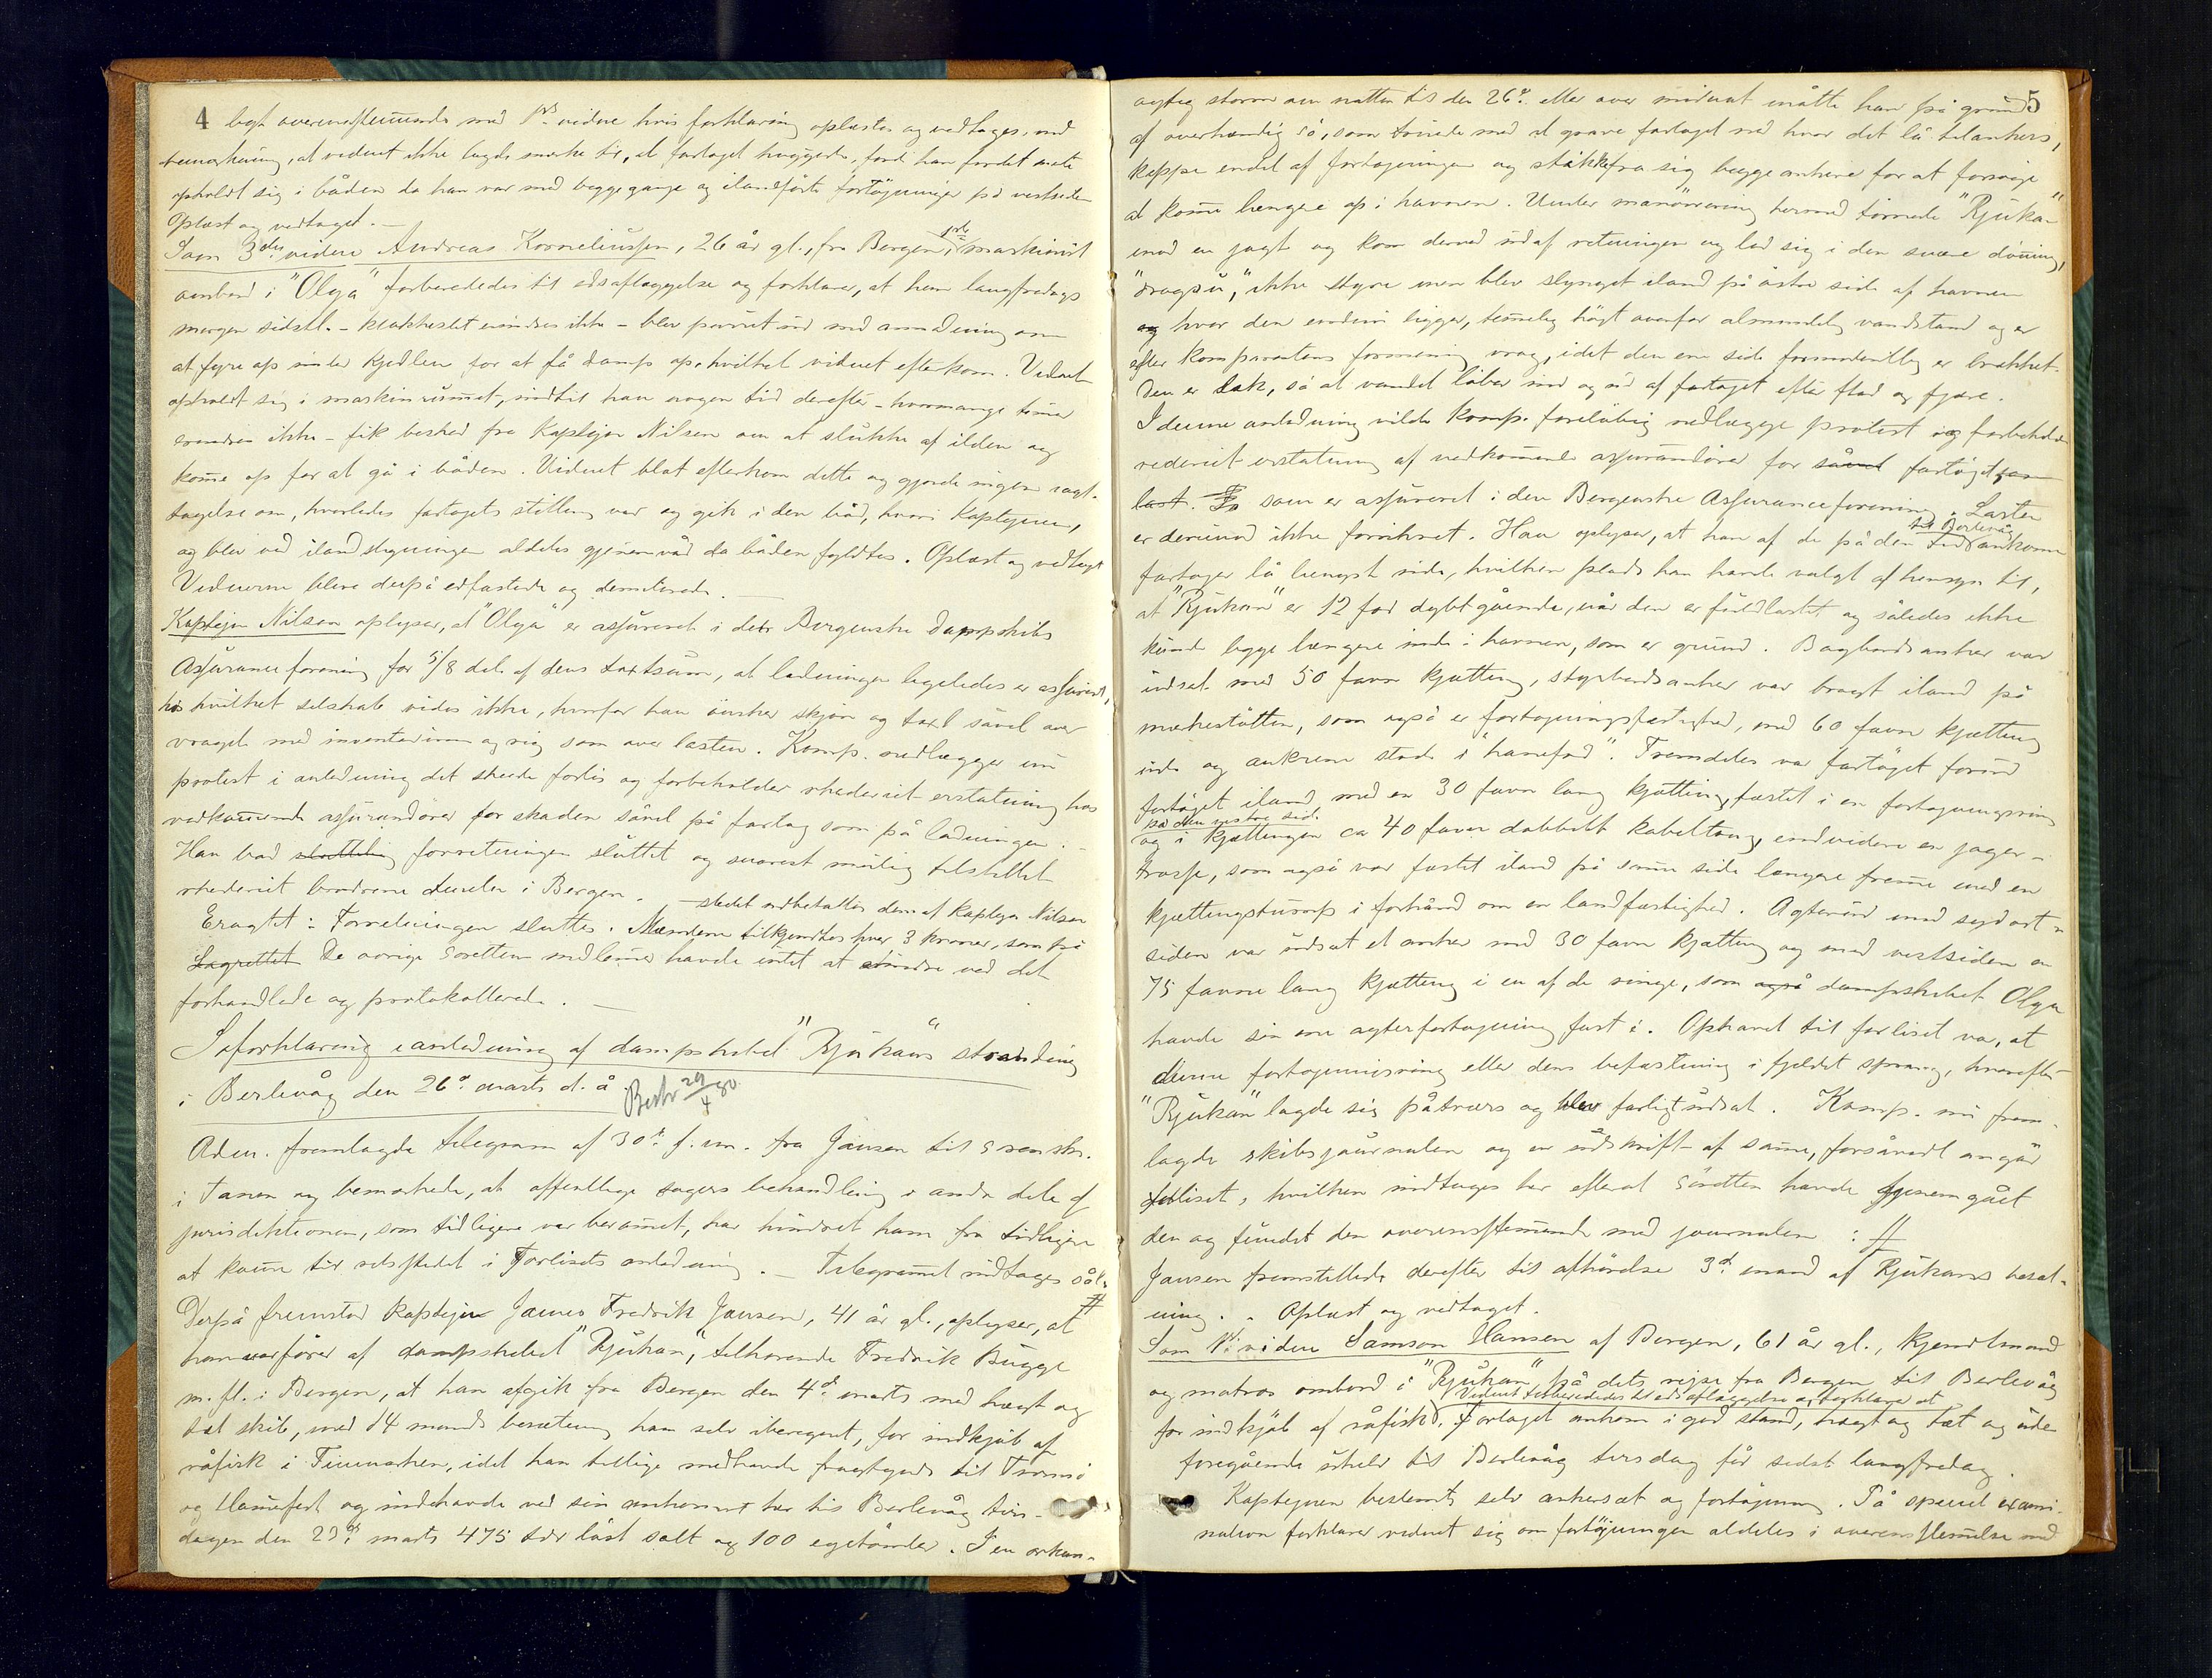 4
ligt overensstemmende med 1ste vidne hvis forklaring oplæstes og vedtages, med
bemærkning, at vidnet ikke lagde mærke til, at fartøjet huggede, fordi han for det meste
opholdt sig i båden da han var med begge gange og ilandførte fortøjninger på vestsiden
Oplæst og vedtaget. —
Som 3die vidne Andreas Korneliussen, 26 år gl., fra Bergen, 1ste maskinist
ombord i "Olga" forberededes til edsaflæggelse og forklarer, at han langfredags
morgen sidstl. – klokkeslet erindres ikke – blev purret ud med anmodning om
at fyre op under kjedlen for at få damp op, hvilket vidnet efterkom. Vidnet
opholdt sig i maskinrummet, indtil han nogen tid derefter – hvormange timer
erindres ikke – fik besked fra Kaptejn Nilsen om at slukke af ilden og
komme op for at gå i båden. Vidnet blot efterkom dette og gjorde ingen iagt-
tagelse om, hvorledes fartøjets stilling var og gik i den båd, hvori Kaptejnen,
og blev ved ilandstigningen aldeles gjennemvåd da båden fyldtes. Oplæst og vedtaget
Vidnerne bleve derpå edfæstede og demitterede. —
Kaptejn Nilsen oplyser, at "Olga" er assureret i det Bergenske Dampskibs
Assuranceforening for 5/8 del af dens taxtsum, at ladningen ligeledes er assureret,
hos hvilket selskab vides ikke, hvorfor han ønsker skjøn og taxt såvel over
vraget med inventarium og rig som over lasten. Komp. nedlægger nu
protest i anledning det skeede forlis og forbeholder rhederiet erstatning hos
vedkommende assurandører for skaden såvel på fartøj som på ladningen. —
Han bad sluttelig forretningen sluttet og snarest mulig tilstillet
rhederiet brødrene i Bergen. —
Eragtet: Forretningen sluttes. Mændene tilkjendtes hver 3 kroner, som på
stedet udbetaltes dem af kaptejn Nilsen
Lagrettet De øvrige søretten medlemmer havde intet at erindre ved det
forhandlede og protokollerede. —
Søforklaring i anledning af dampskibet "Rjukans" stranding
i Berlevåg den 26de marts d. å.
Beskr 29/4 80
Adm. fremlagde telegram af 30te f. m. fra Jansen til Sorenskr.
i Tanen og bemærkede, at offentlige sagers behandling i andre dele af
jurisdiktionen, som tidligere var berammet, har hindret ham fra tidligere
at komme til retsstedet i forlisets anledning. — Telegrammet indtages sål.
#
Derpå fremstod kaptejn James Fredrik Jansen, 41 år gl., oplyser, at
han er fører af dampskibet "Rjukan", tilhørende Fredrik Bugge
m. fl. i Bergen, at han afgik fra Bergen den 4de marts med hægt og
tæt skib, med 14 mands besætning ham selv iberegnet, for indkjøb af
råfisk i Finmarken, idet han tillige medhavde fragtgods til Tromsø
og Hammerfest og indehavde ved sin ankomst her til Berlevåg tirs-
dagen den 23de marts 475 tdr løst salt og 100 egetønder. I en orkan-
5
agtig storm om natten til den 26de eller over midnat måtte han på grund
af overhændig sø, som truede med at grave fartøjet ned hvor det lå tilankers,
kappe endel af fortøjningen og stikke fra sig begge ankere for at forsøge
at komme længere op i havnen. Under manøvrering hermed tørnede "Rjukan"
mod en jagt og kom derved ud af retningen og lod sig i den svære dønning,
"dragsu", ikke styre men blev slynget iland på østre side af havnen
og hvor den endnu ligger, temmelig højt ovenfor almindelig vandstand og er
efter Komparentens formening vrag, idet den ene side formodentlig er brækket.
Den er læk, så at vandet løber ind og ud af fartøjet efter flod og fjære.
I denne anledning vilde Komp. foreløbig nedlægge protest og forbeholde
rederiet erstatning af vedkommende assurandører for såvel fartøjet som
last. som er assureret i den Bergenske Assuranceforening. Lasten
er derimod ikke forsikret. Han oplyser, at han af de på den tid til Berlevåg ankomne
fartøjer lå længst ude, hvilken plads han havde valgt af hensyn til,
at "Rjukan" er 12 fod dybtgående, når den er fuldlastet og således ikke
kunde ligge længere inde i havnen, som er grund. Bagbords anker var
udsat med 50 favne kjætting, styrbords anker var bragt iland på
mærkestøtten, som også er fortøjningsfæstighed, med 60 favne kjætting
ude og ankrene stod i "hanefod". Fremdeles var fartøjet forud
fortøjet iland på den vestre side med en 30 favne lang kjætting, fæstet i en fortøjningsring
og i kjættingen ca 40 favne dobbelt kabeltoug, endvidere en jager-
trosse, som også var fæstet iland på samme side længere fremme med en
kjættingstump i forhånd om en landfæstighed. Agterud mod sydost-
siden var udsat et anker med 30 favne kjætting og mod vestsiden en
75 favne lang kjætting i en af de ringe, som også dampskibet Olga
havde sin ene agterfortøjning fast i. Ophavet til forliset var, at
denne fortøjningsring eller dens befæstning i fjeldet sprang, hvorefter
"Rjukan" lagde sig påtværs og blev farligt udsat. Komp. nu frem-
lagde skibsjournalen og en udskrift af samme, forsåvidt angår
forliset, hvilken indtages her efterat søretten havde gjennemgået
den og fundet den overensstemmende med journalen: #
Jansen fremstillede derefter til afhørelse 3de mand af Rjukans besæt-
ning. . Oplæst og vedtaget.
Som 1ste vidne Samson Hansen af Bergen, 61 år gl., kjendtmand
og matros ombord i "Rjukan", på dets rejse fra Bergen til Berlevåg
for indkjøb af råfisk. Vidnet forberededes til edsaflæggelse og forklarer at Fartøjet ankom i god stand, hægt og tæt og uden
foregående uheld til Berlevåg tirsdag før sidst langfredag.
Kaptejnen bestemte selv ankersæt og fortøjning. På speciel exami-
nation forklarer vidnet sig om fortøjningen aldeles i overensstemmelse med